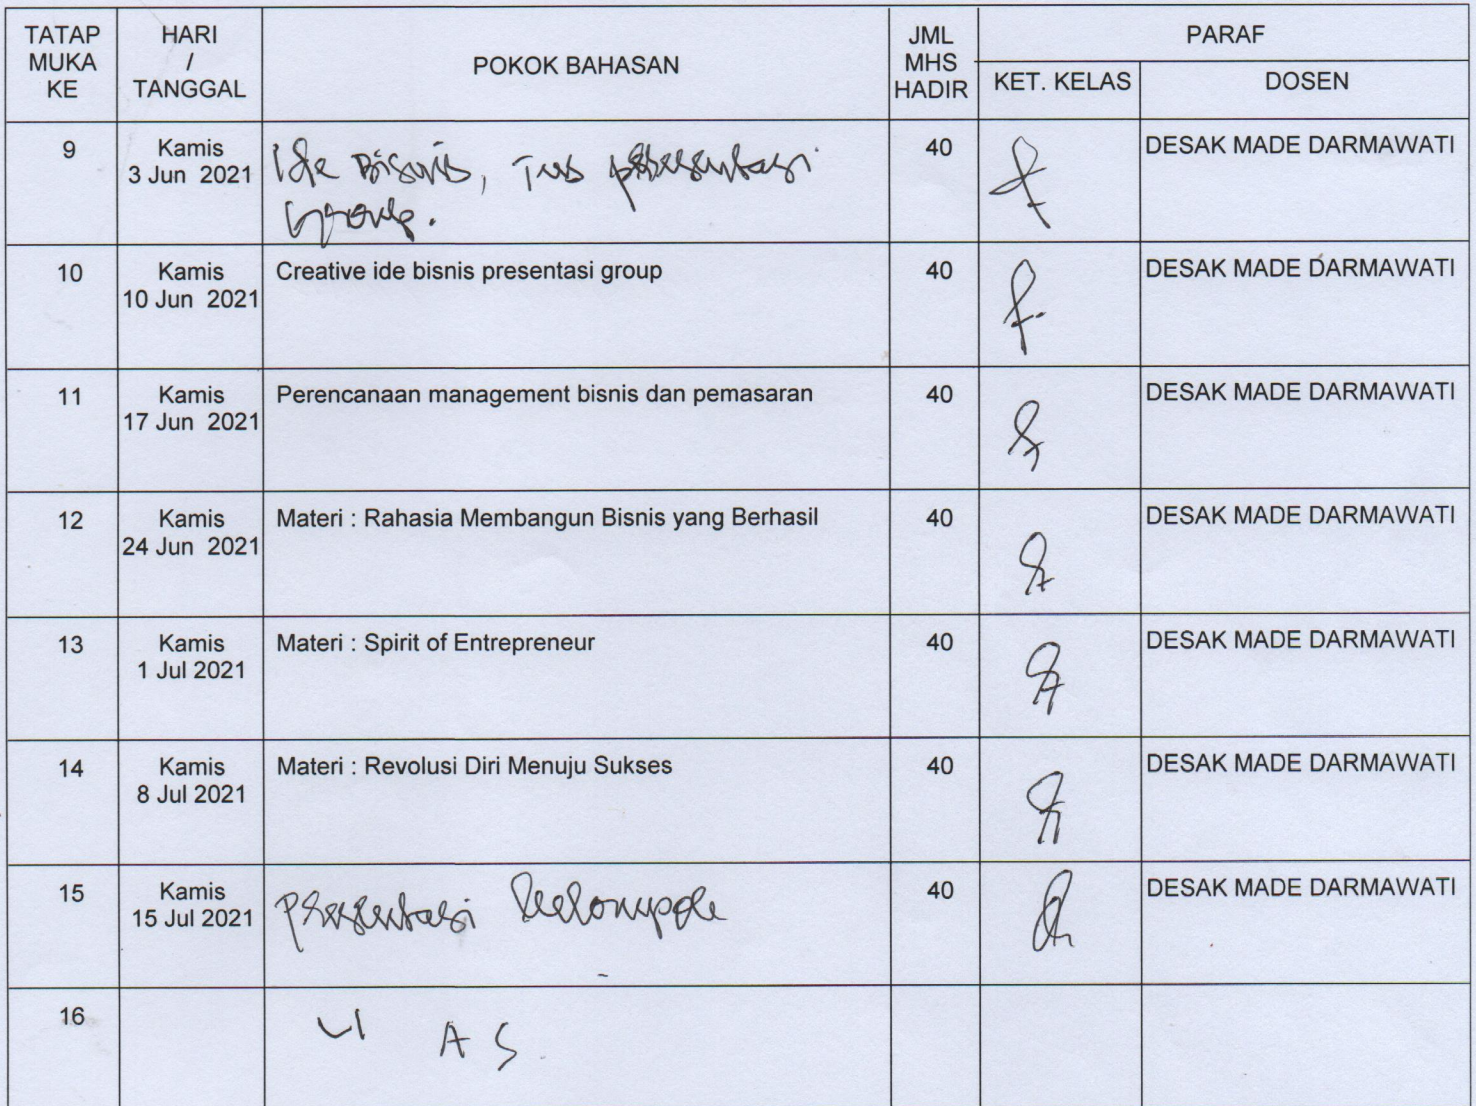 TATAP MUKA KE | HARI / TANGGAL | POKOK BAHASAN | JML MHS HADIR | PARAF
KET. KELAS | DOSEN
9 | Kamis 3 Jun 2021 | Ide Bisnis, presentasi group. | 40 | DESAK MADE DARMAWATI
10 | Kamis 10 Jun 2021 | Creative ide bisnis presentasi group | 40 | DESAK MADE DARMAWATI
11 | Kamis 17 Jun 2021 | Perencanaan management bisnis dan pemasaran | 40 | DESAK MADE DARMAWATI
12 | Kamis 24 Jun 2021 | Materi : Rahasia Membangun Bisnis yang Berhasil | 40 | DESAK MADE DARMAWATI
13 | Kamis 1 Jul 2021 | Materi : Spirit of Entrepreneur | 40 | DESAK MADE DARMAWATI
14 | Kamis 8 Jul 2021 | Materi : Revolusi Diri Menuju Sukses | 40 | DESAK MADE DARMAWATI
15 | Kamis 15 Jul 2021 | presentasi kelompok | 40 | DESAK MADE DARMAWATI
16 | U A S